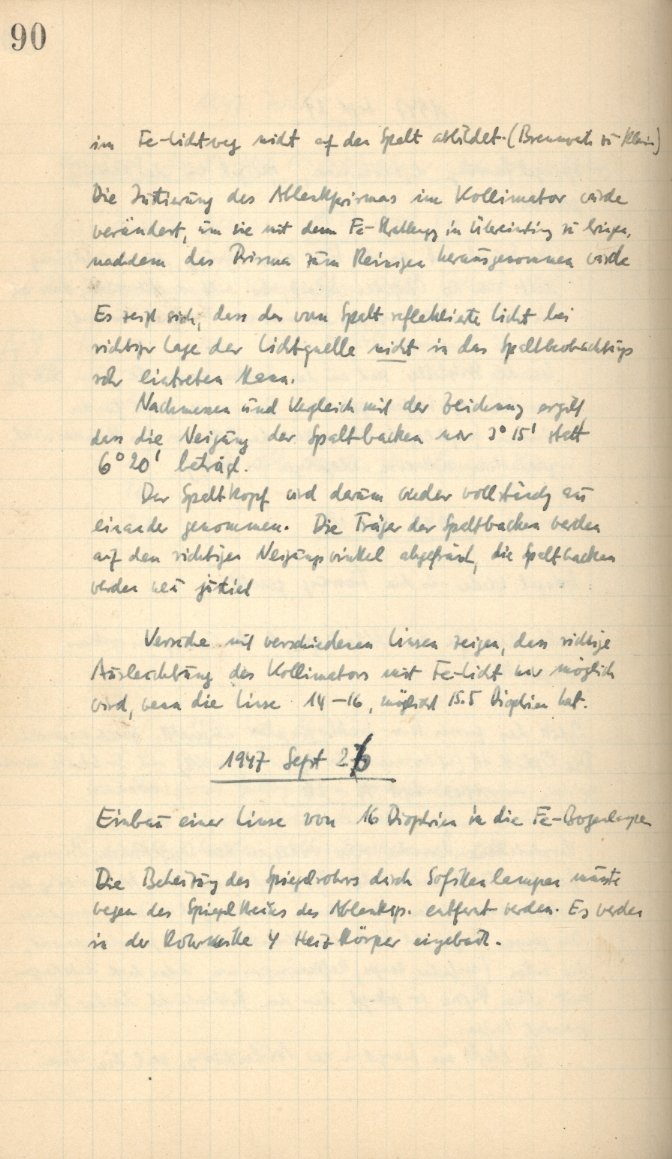 90
im Fe-Lichtweg nicht auf den Spalt abbildet. (Brennweite zu klein)
Die Justierung des Ablenkprismas im Kollimator wurde
verändert, um sie mit dem Fe- in zu bringen,
nachdem das Prisma zum Reinigen herausgenommen wurde
Es zeigt sich, dass das vom Spalt reflektierte Licht bei
richtiger Lage der Lichtquelle nicht in das Spaltbeobachtungs
rohr eintreten kann.
Nachmessen und Vergleich mit der Zeichnung ergibt
dass die Neigung der Spaltbacken nur 3° 15' statt
6° 20' beträgt.
Der Spaltkopf wird darum wieder vollständig aus
einander genommen. Die Träger der Spaltbacken werden
auf den richtigen Neigungswinkel abgefräst, die Spaltbacken
werden neu justiert
Versuche mit verschiedenen Linsen zeigen, dass richtige
Ausleuchtung des Kollimators mit Fe-Licht nur möglich
wird, wenn die Linse 14-16, möglichst 15.5 Dioptrien hat.
1947 Sept 26
Einbau einer Linse von 16 Dioptrien in die Fe-Bogenlampe
Die Beheizung des Spiegelrohrs durch Sofittenlampen musste
wegen des des Ablenksp. entfernt werden. Es werden
in der 4 Heizkörper eingebaut.